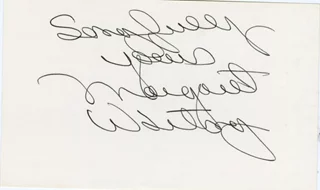 Songfully
yours
Margaret
Whiting